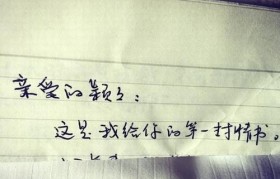 亲爱的颖颖:
这是我给你的第一封情书。